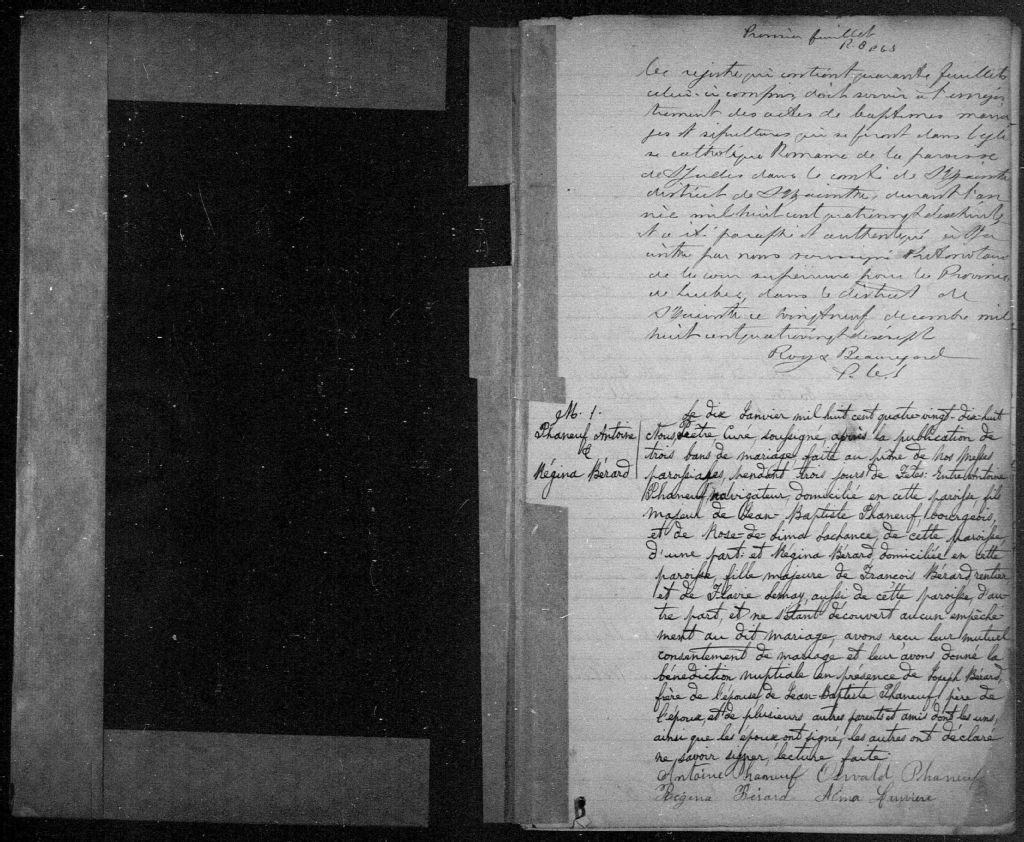 Premier feuillet
Ce registre qui contient quarante feuillets
celui-ci compris, doit servir à l'enregis
trement des actes de baptêmes maria
ges et sépultures qui se feront dans l'égli
se catholique Romaine de la paroisse
de St Judes dans le comté de St Hyacinthe
district de St Hyacinthe, durant l'an
née mil huit cent quatrevingt dixhuit
et a été paraphé et authentiqué à St Hya
cinthe par nous soussigné Protonotaire
de la cour supérieure pour la Province
de Québec, dans le district de
St Hyacinthe ce vingtneuf décembre mil
huit cent quatrevingt dixsept
Roy & Beauregard
P. C. S
M. 1.
Phaneuf Antoine
&
Régina Bérard
Le dix Janvier mil huit cent quatre-vingt-dix-huit
Nous Prêtre, Curé soussigné, après la publication de
trois bans de mariage faite au prône de nos Messes
paroissiales, pendant trois jours de Fêtes: Entre Antoine
Phaneuf, navigateur, domicilié en cette paroisse, fils
majeur de Jean-Baptiste Phaneuf, bourgeois,
et de Rose-de-Lima Lachance, de cette paroisse,
d'une part: et Régina Bérard, domiciliée en cette
paroisse, fille majeure de Francois Bérard, rentier
et de Flavie Lemay, aussi de cette paroisse, d'au
tre part, et ne s'étant découvert aucun empêche
ment au dit mariage, avons recu leur mutuel
consentement de mariage et leur avons donné la
bénédiction nuptiale en présence de Joseph Bérard,
frère de l'épouse, de Jean-Baptiste Phaneuf, père de
l'époux, et de plusieurs autres parents et amis dont les uns,
ainsi que les époux ont signé, les autres ont déclaré
ne savoir signer, lecture faite
Antoine Phaneuf Oswald Phaneuf
Régina Bérard Alma